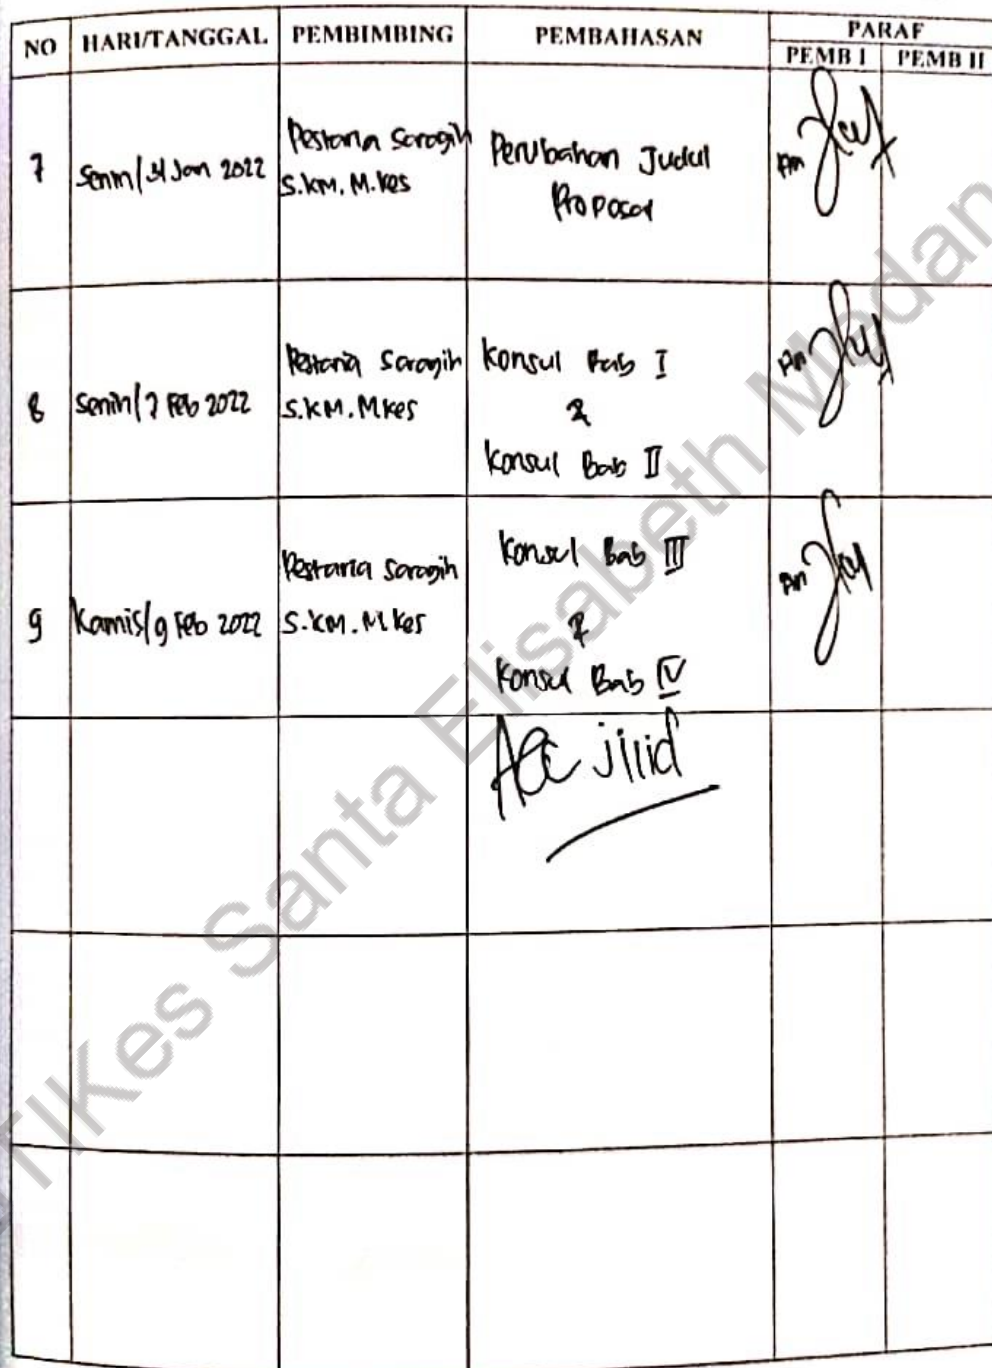 NO HARI/TANGGAL PEMBIMBING PEMBAHASAN PARAF
PEMB I PEMB II
7 Senin/31 Jan 2022 Pestaria Saragih S.KM. M.Kes Perubahan Judul Proposal
8 Senin/7 Feb 2022 Pestaria Saragih S.KM. MKes Konsul Bab I
&
Konsul Bab II
9 Kamis/9 Feb 2022 Pestaria Saragih S.KM. M.Kes Konsul Bab III
&
Konsul Bab IV
Acc jilid
STIKes Santa Elisabeth Medan